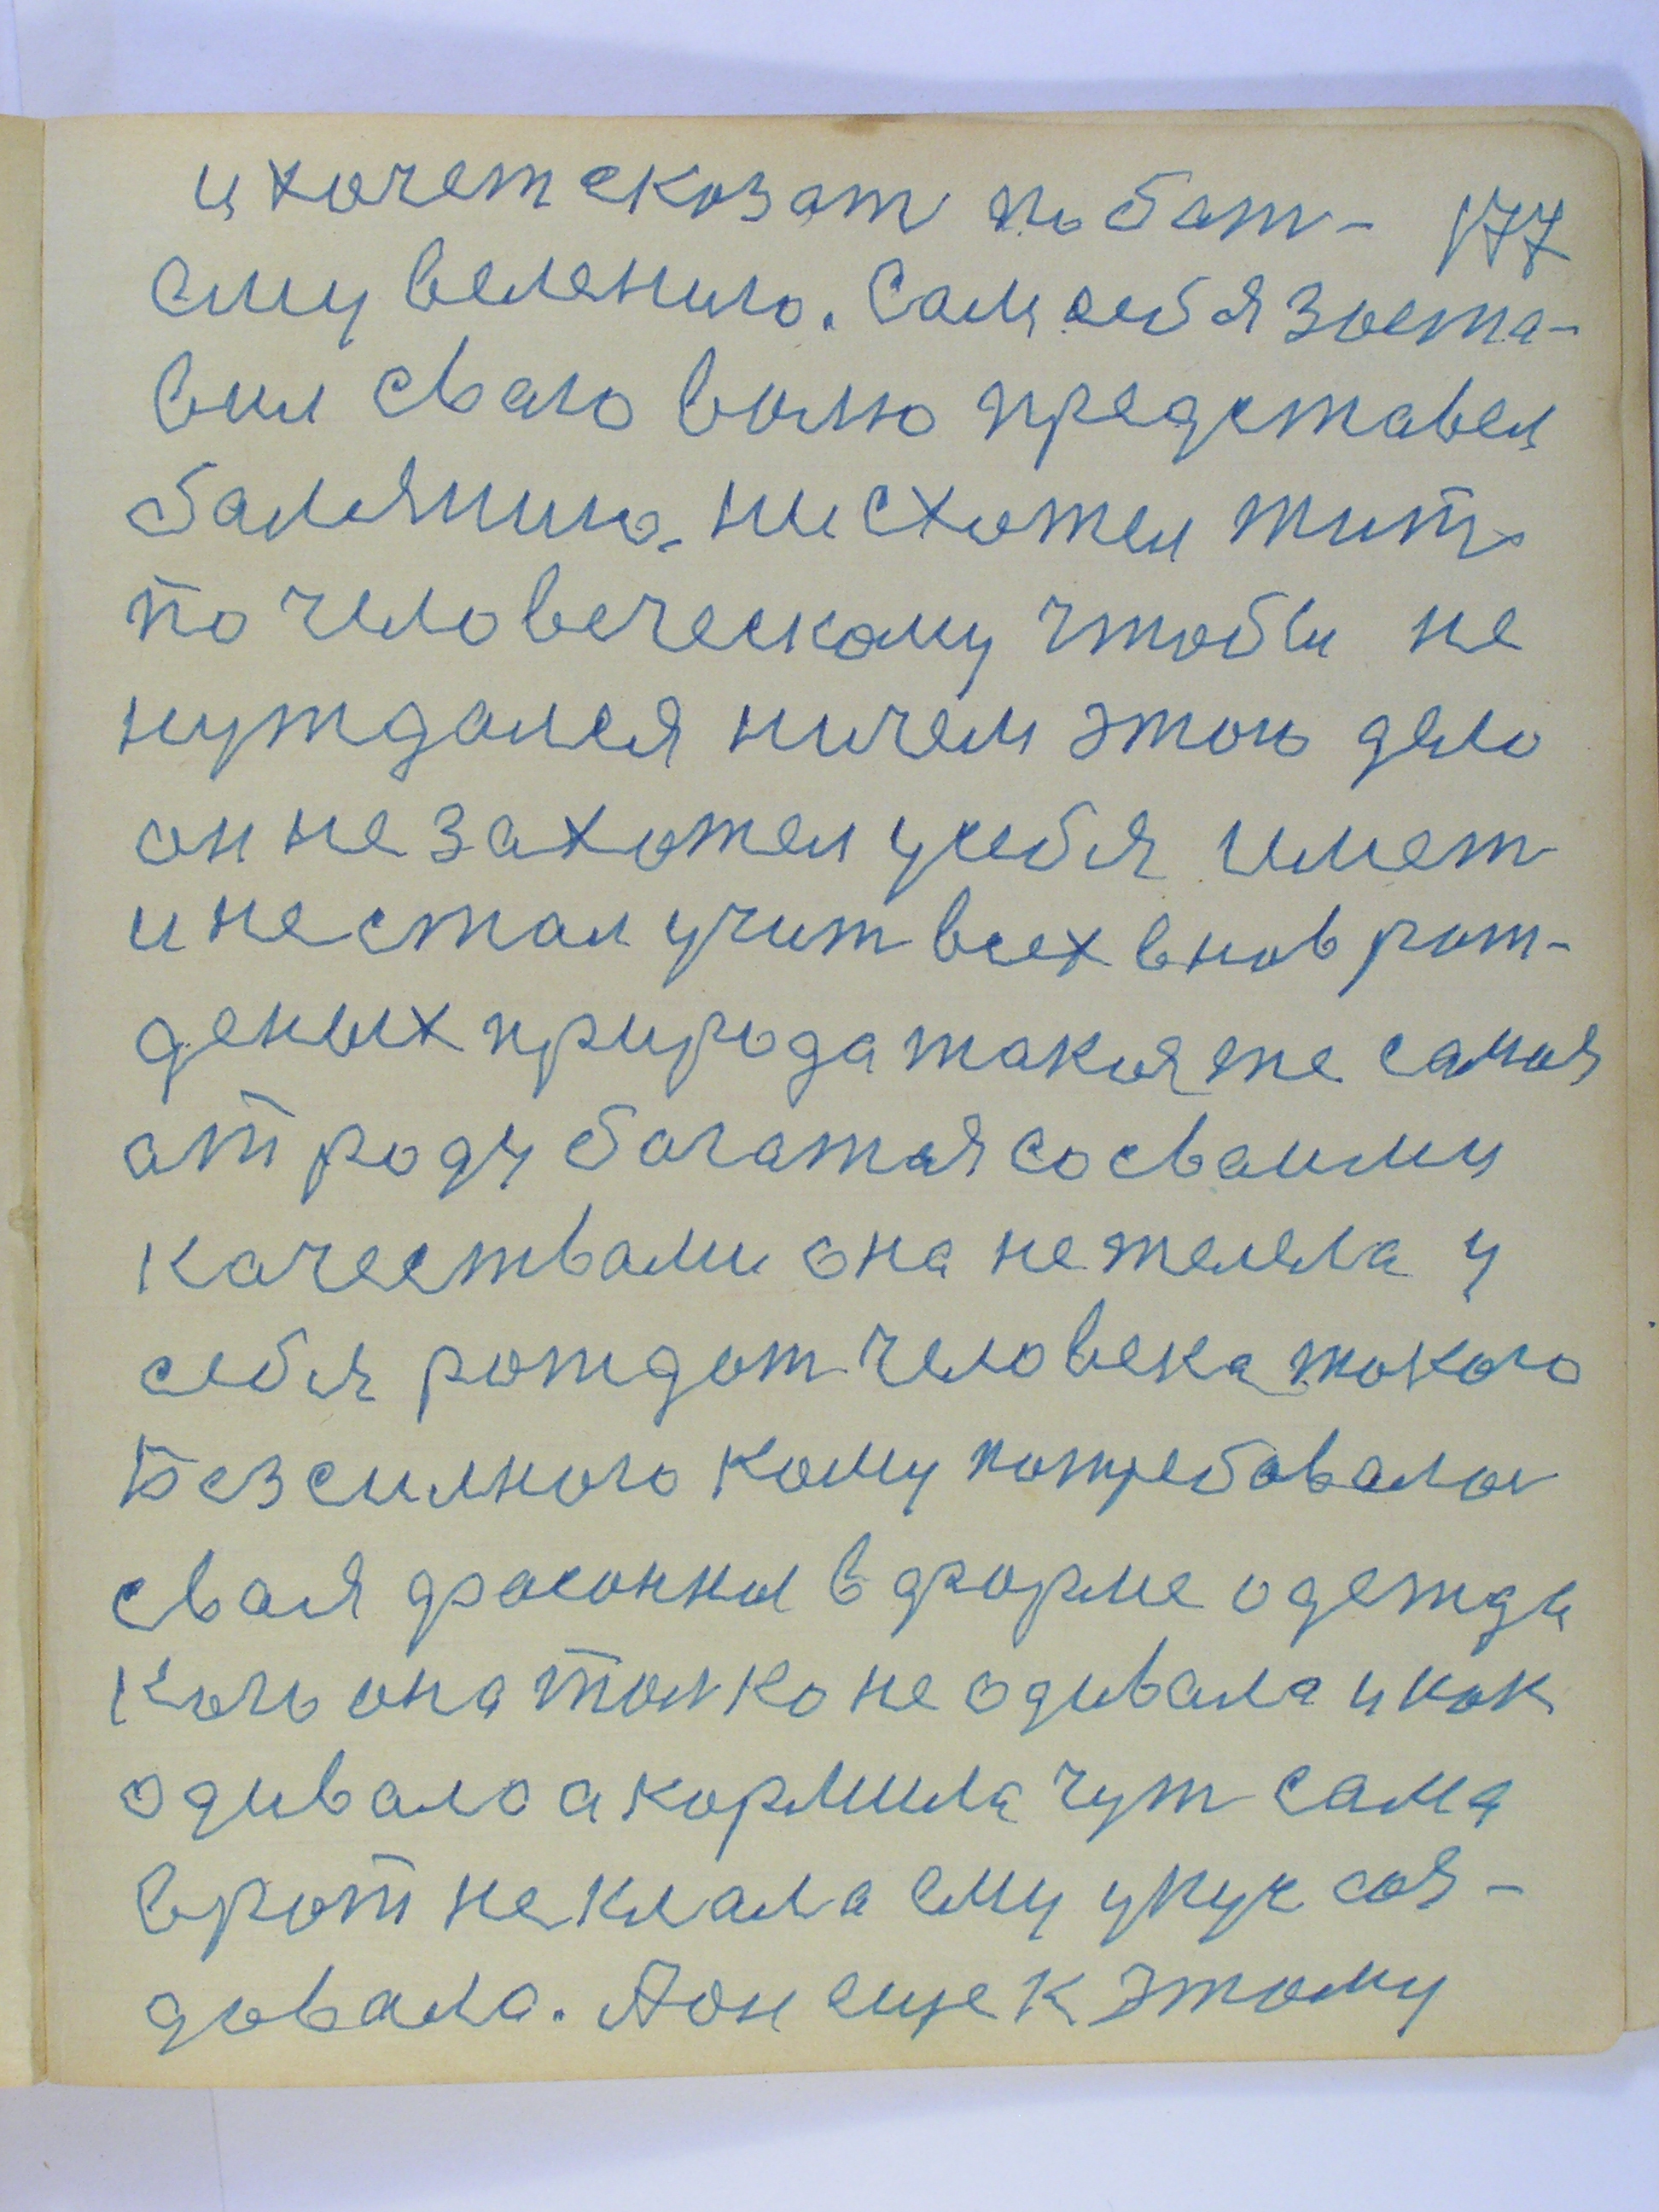 и хочет сказат по бот- 177
ему велению. Сам себя зоста-
вил сваю волю представел
балячию. ни схотел жит
по человеческому чтобы не
нуждался ничем этого дело
он не захотел у себя имет
и не стал учит всех внов рож-
деных природа такая же самая
от роду богатая со сваими
качествами она не желела у
себя рождат человека такого
безсилного кому потребовалос
свая фасонны в форме одежды
кого она толко не одивала и как
одивало а кормила чут сама
в рот не клала ему укус соз-
довала. А он еще к этому